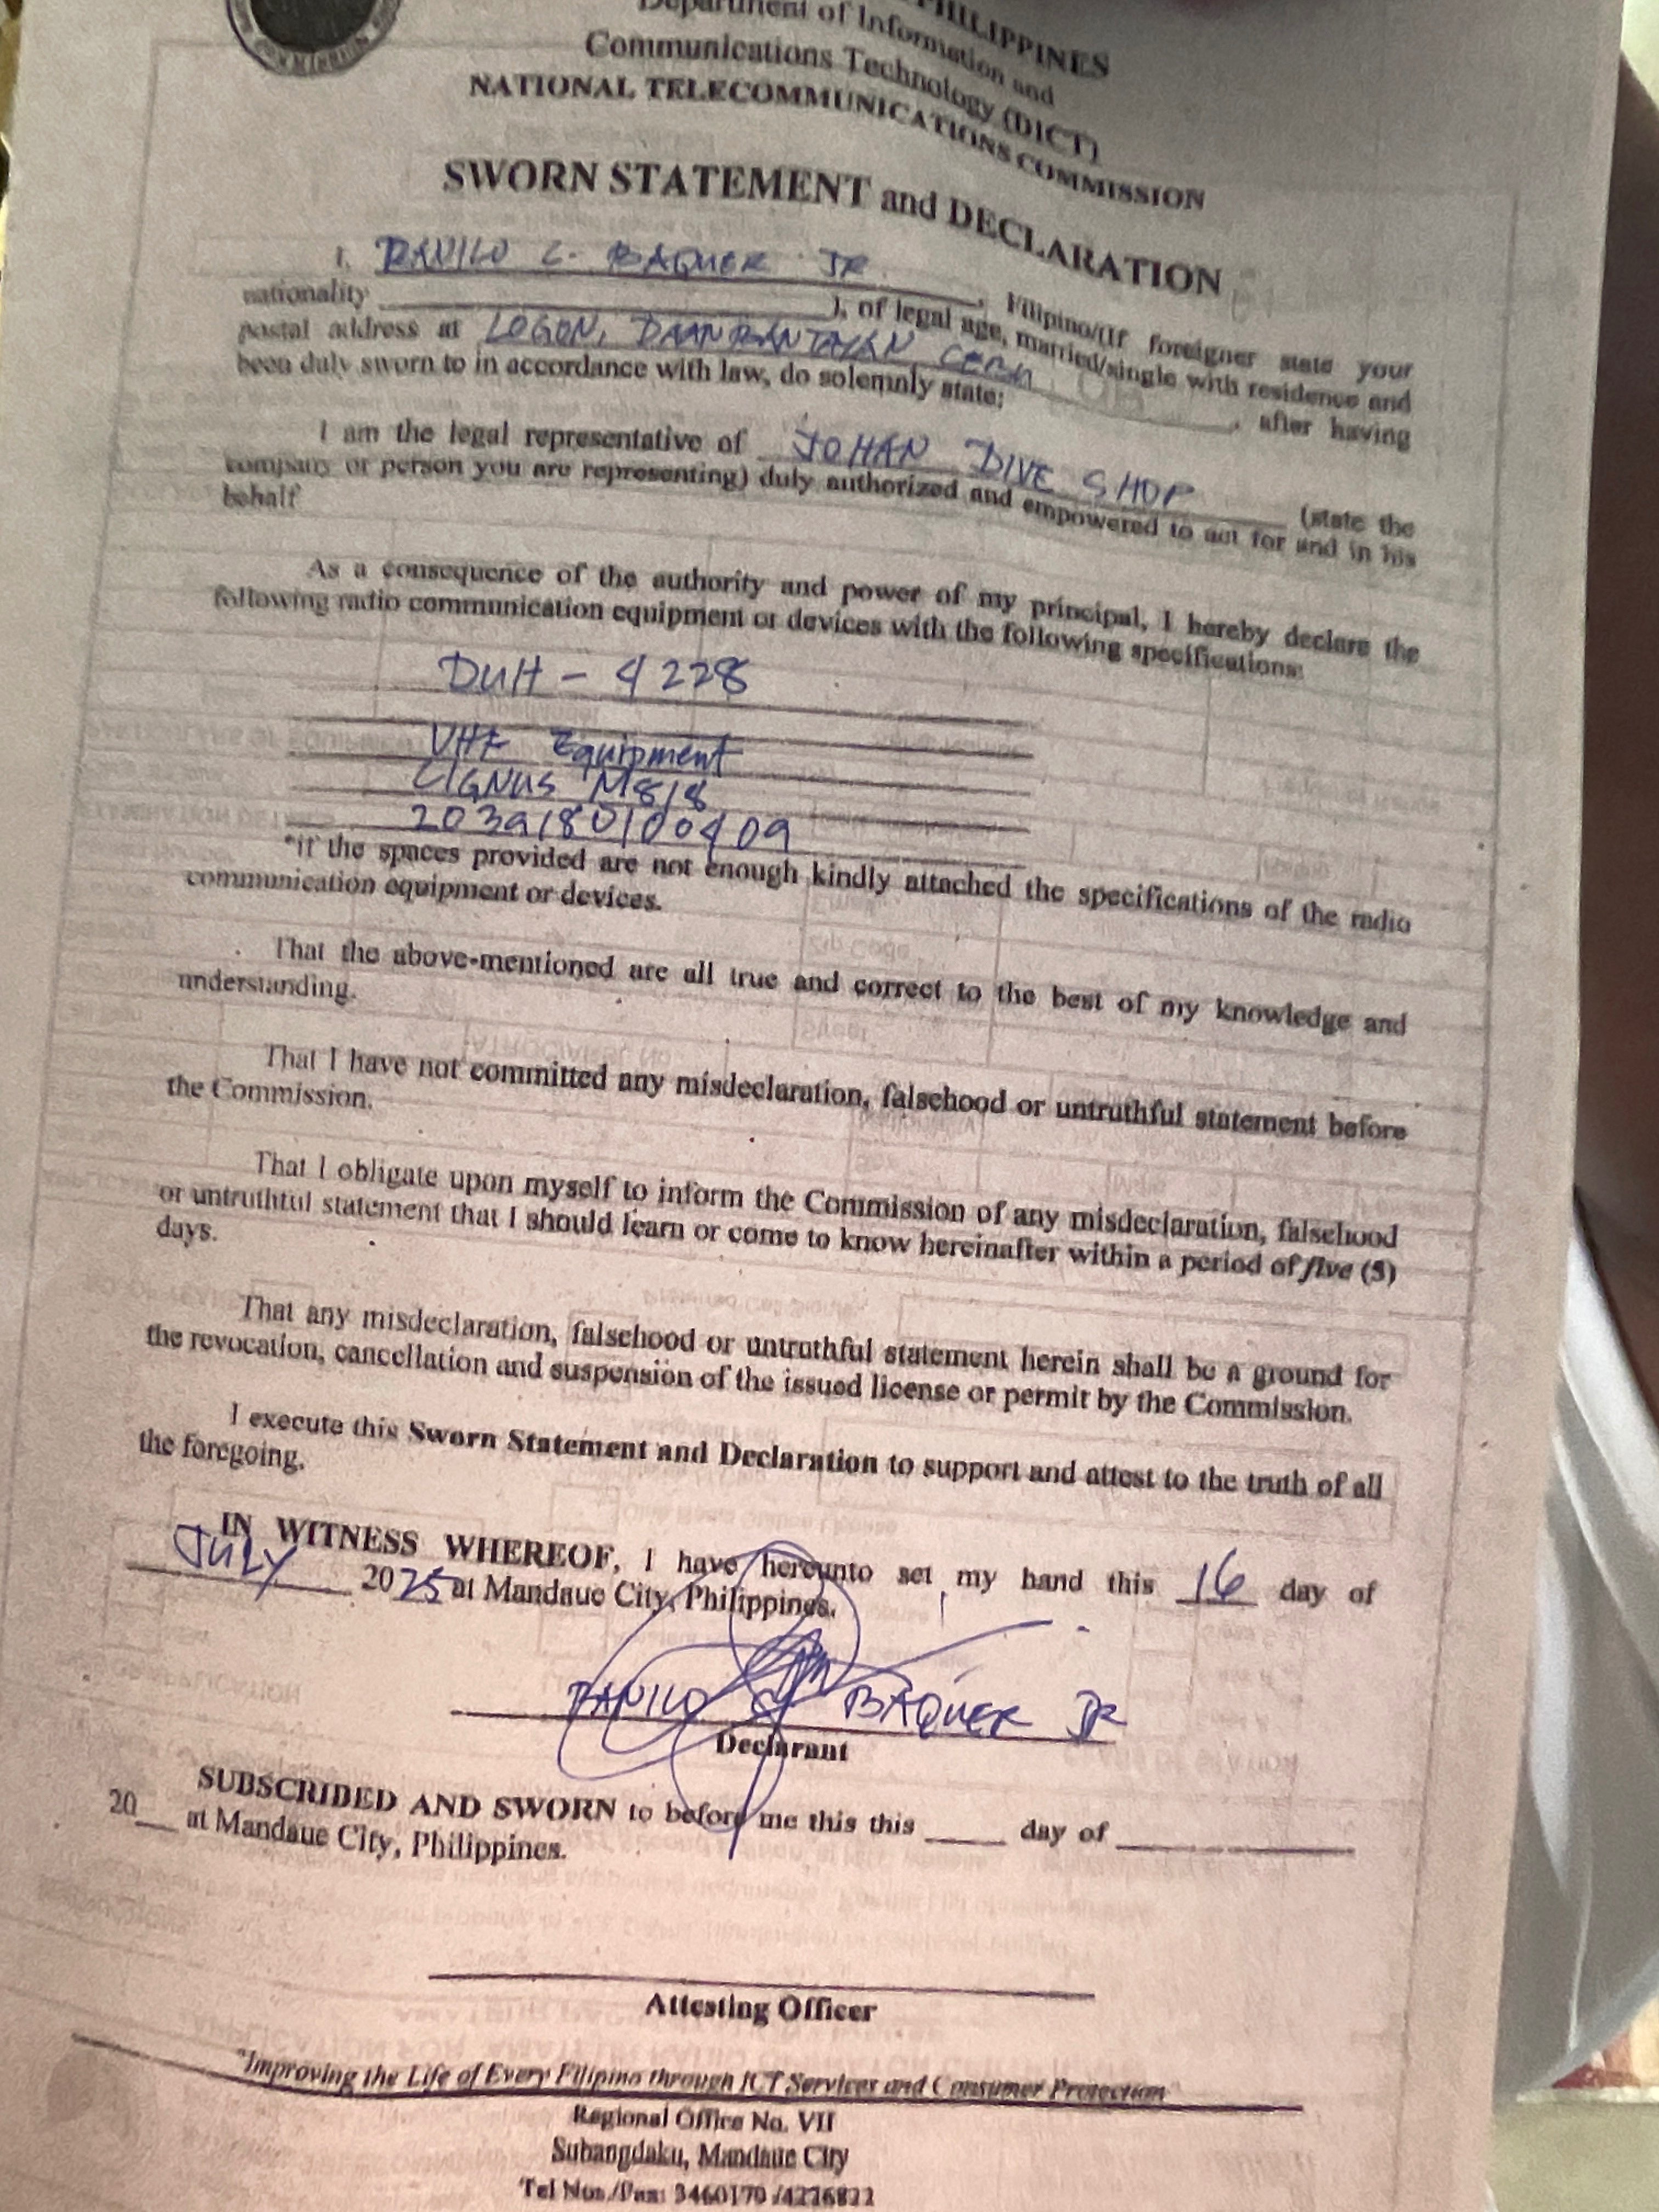 COMMISSION
PHILIPPINES
Department of Information and
Communications Technology (DICT)
NATIONAL TELECOMMUNICATIONS COMMISSION
SWORN STATEMENT and DECLARATION
I, DANILO C. BAQUER JR, Filipino/(If foreigner state your
nationality ), of legal age, married/single with residence and
postal address at LOGON, DAANBANTAYAN CEBU, after having
been duly sworn to in accordance with law, do solemnly state:
I am the legal representative of JOHAN DIVE SHOP (state the
company or person you are representing) duly authorized and empowered to act for and in his
behalf
As a consequence of the authority and power of my principal, I hereby declare the
following radio communication equipment or devices with the following specifications:
DUH - 4228
VHF Equipment
CIGNUS M818
203A180100409
*if the spaces provided are not enough kindly attached the specifications of the radio
communication equipment or devices.
That the above-mentioned are all true and correct to the best of my knowledge and
understanding.
That I have not committed any misdeclaration, falsehood or untruthful statement before
the Commission.
That I obligate upon myself to inform the Commission of any misdeclaration, falsehood
or untruthful statement that I should learn or come to know hereinafter within a period of five (5)
days.
That any misdeclaration, falsehood or untruthful statement herein shall be a ground for
the revocation, cancellation and suspension of the issued license or permit by the Commission.
I execute this Sworn Statement and Declaration to support and attest to the truth of all
the foregoing.
IN WITNESS WHEREOF, I have hereunto set my hand this 16 day of
JULY 2025 at Mandaue City, Philippines.
DANILO C. BAQUER JR
Declarant
SUBSCRIBED AND SWORN to before me this this ____ day of ____
20__ at Mandaue City, Philippines.
Attesting Officer
"Improving the Life of Every Filipino through ICT Services and Consumer Protection"
Regional Office No. VII
Subangdaku, Mandaue City
Tel Nos./Fax: 3460170 /4226822